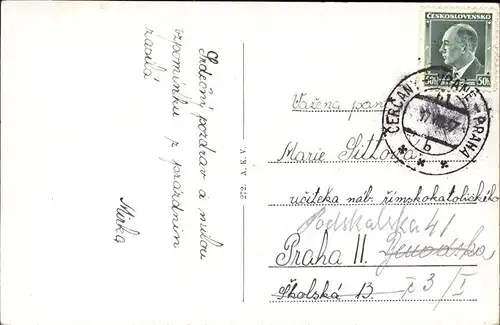 Srdečný pozdrav a milou
vzpomínku z prázdnin
zasílá
Mirka
252. A. K. V.
ČESKOSLOVENSKO
50h 50h
ČERČANY PRAHA
b
Vážená paní
Marie Sittova
učitelka náb. římskokatolického
Podskalska 41
Praha II.
Školská 13. č 3/I